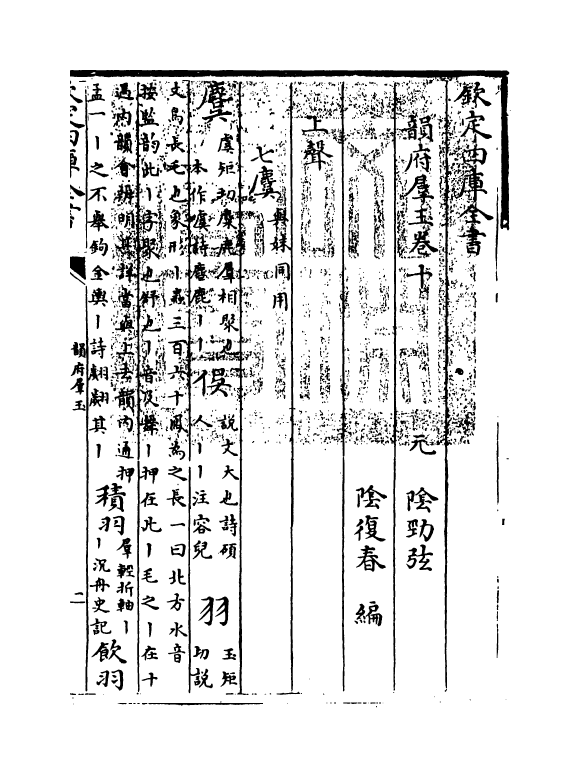 欽定四庫全書
韻府羣玉卷十
元 陰勁弦
陰復春 編
上聲
七麌與姥同用
麌虞矩切麋鹿羣相聚也本作虞詩麀鹿丨丨俣說文大也詩碩人丨丨注容皃羽玉矩切說
文鳥長毛也象形丨蟲三百六十鳳爲之長一曰北方水音
按監韵此丨字聚也舒也丨音及丨押在此丨毛之丨在十
遇内韻會辨明其詳當與上去韻内通押積羽羣輕折軸丨
孟一丨之不舉鉤金輿丨詩翽翽其丨丨沉舟史記飲羽
韻府羣玉
二